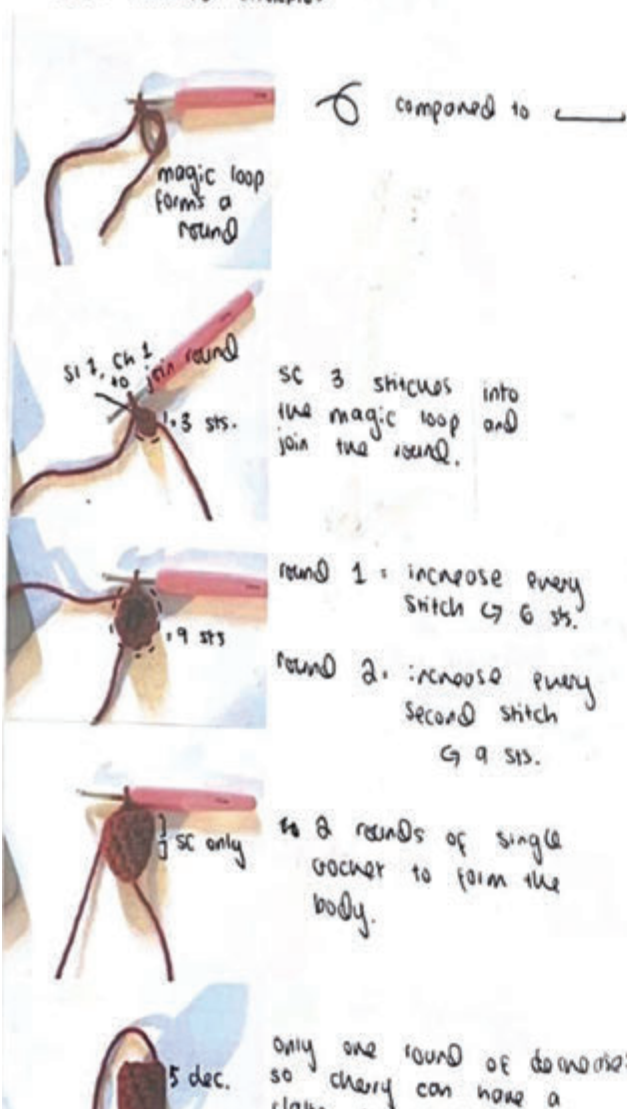 compared to
magic loop
forms a
round
Sl 1, Ch 1
to join round
: 3 sts.
SC 3 stitches into
the magic loop and
join the round.
: 9 sts
round 1: increase every
stitch ↪ 6 sts.
round 2: increase every
second stitch
↪ 9 sts.
SC only
2 rounds of single
crochet to form the
body.
5 dec.
only one round of decreases
so cherry can have a